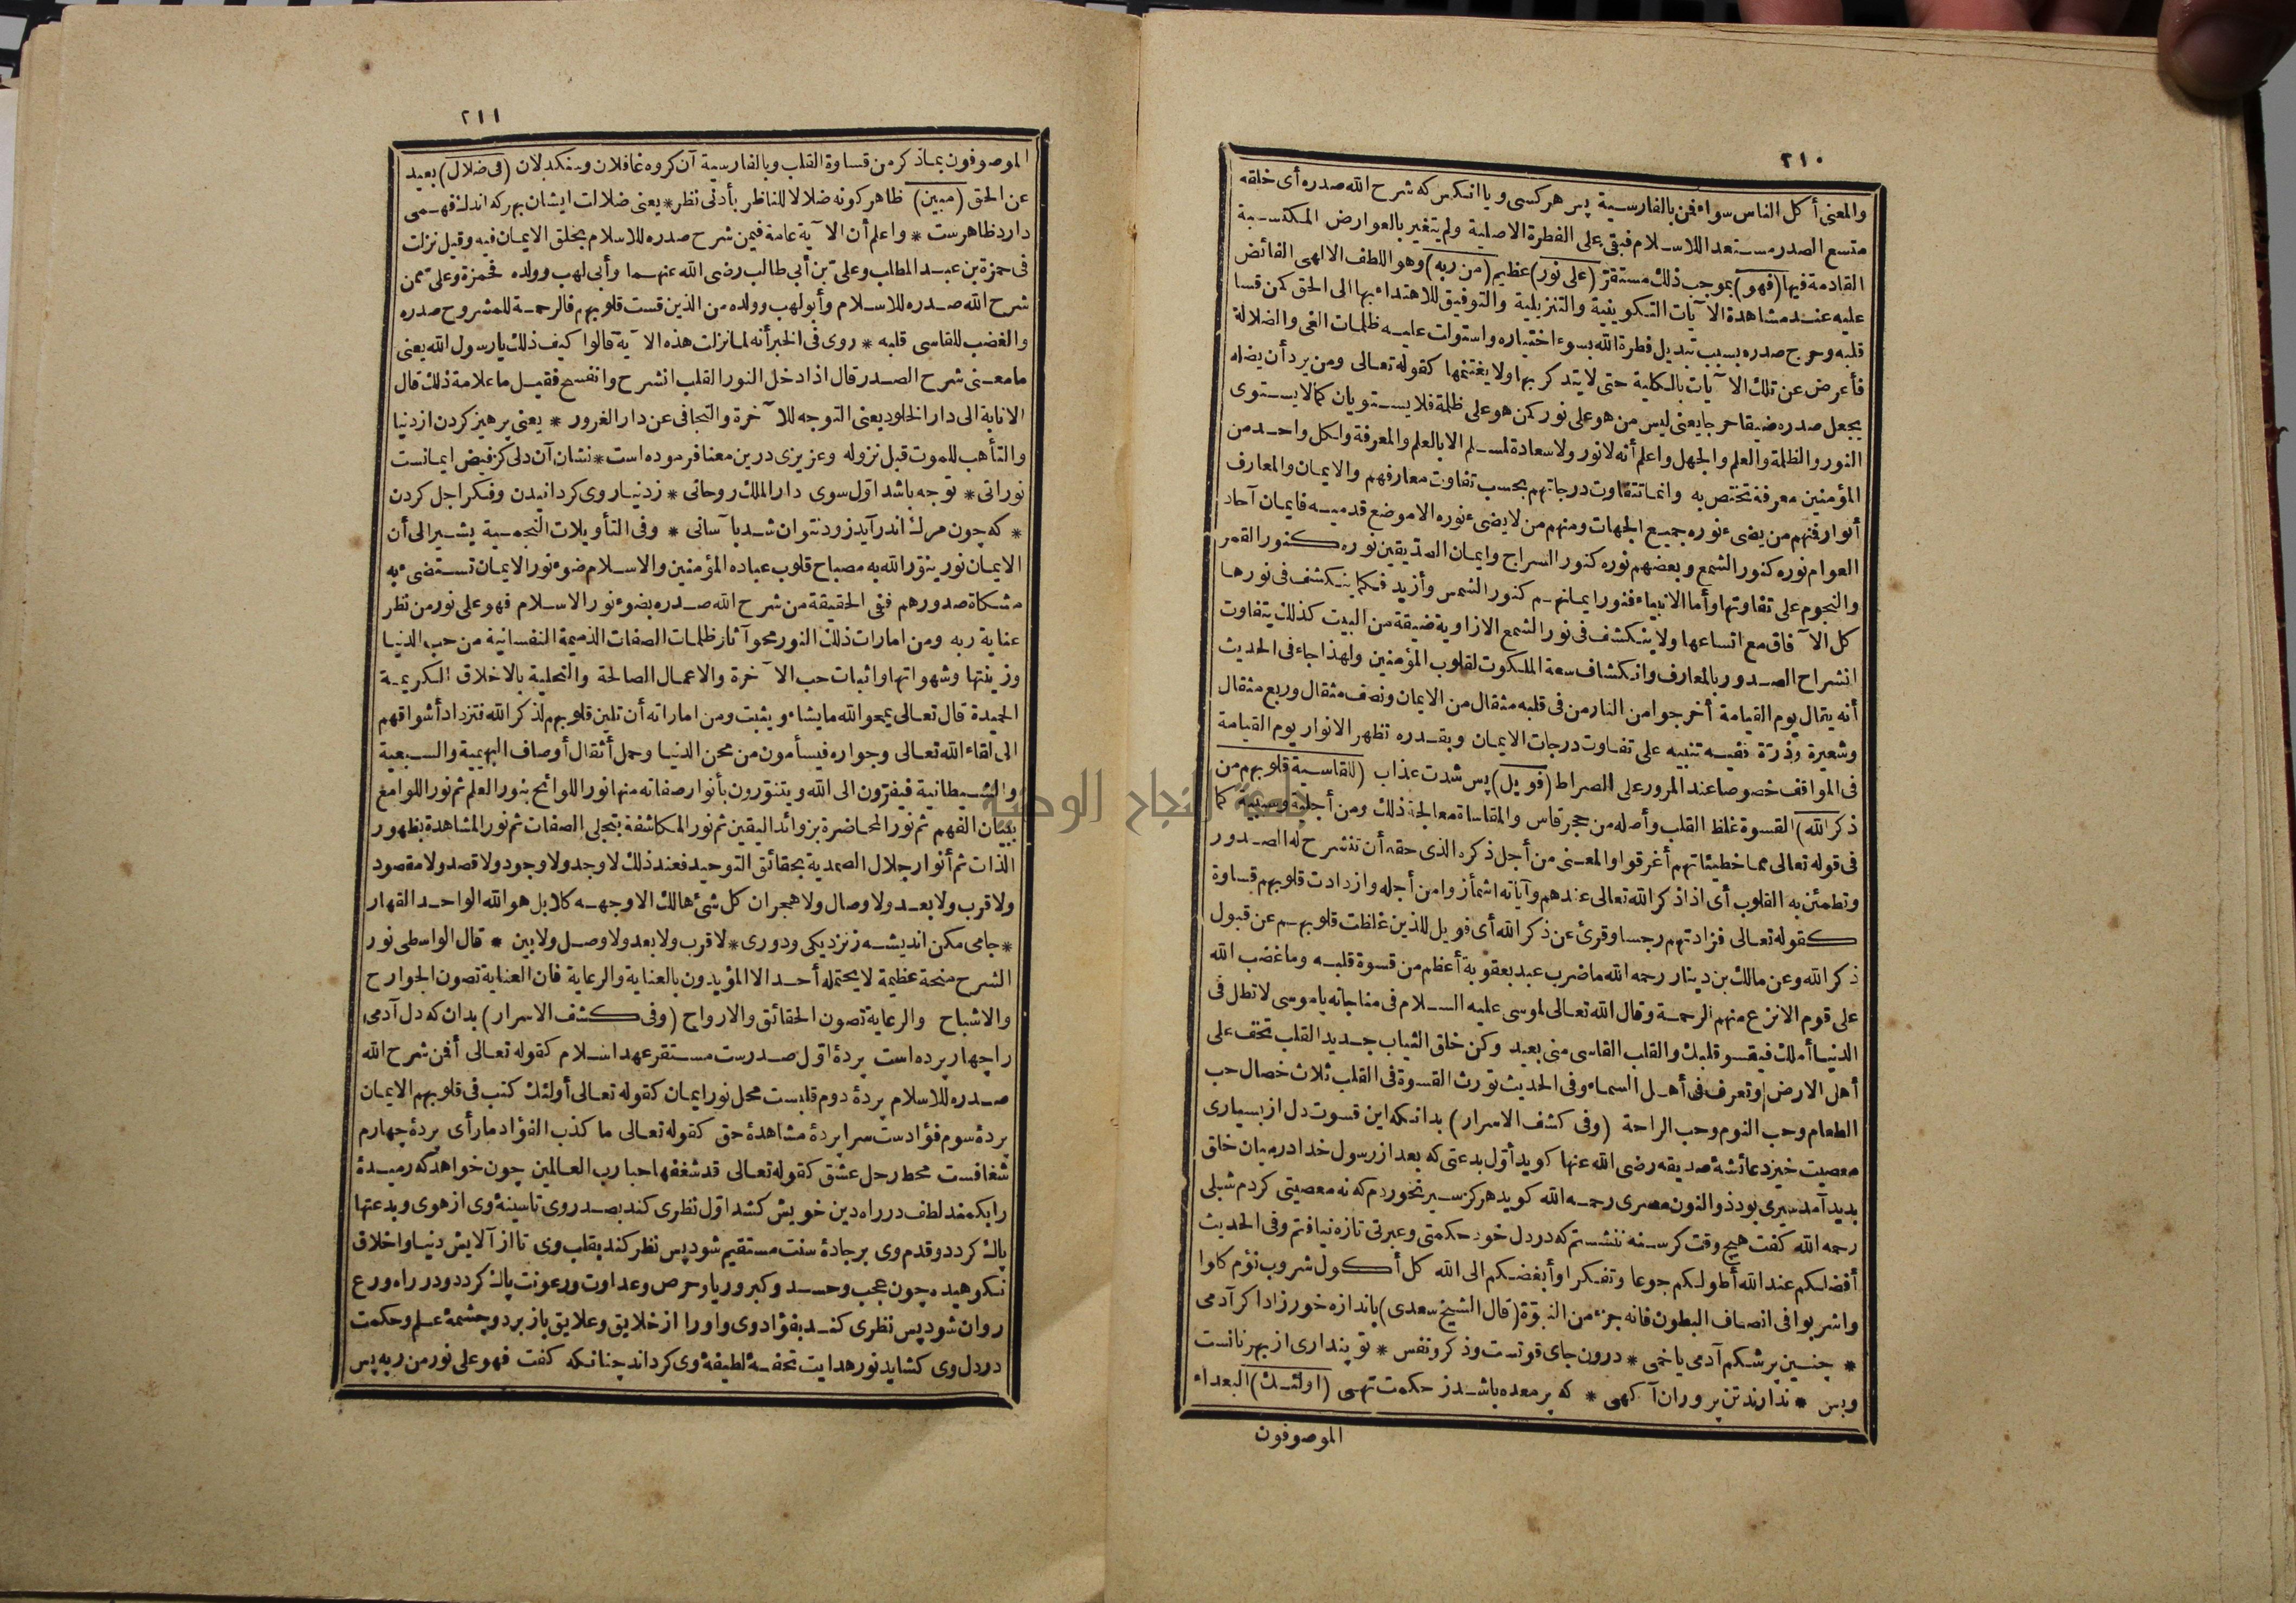 ٢١٠
والمعنى أكل الناس سواء فمن بالفارسية پس هر کسی ویا انکس که شرح الله صدره أى خلقه
متسع الصدر مستعدا للاسلام فبقى على الفطرة الاصلية ولم يتغير بالعوارض المكتسبة
القادمة فيها (فهو) بموجب ذلك مستقرّ (على نور) عظيم (من ربه) وهو اللطف الالهى الفائض
عليه عند مشاهدة الآيات التكوينية والتنزيلية والتوفيق للاهتداء بها الى الحق كمن قسا
قلبه وحرج صدره بسبب تبديل فطرة الله بسوء اختياره واستوات عليه ظلمات الغى والضلالة
فأعرض عن تلك الآيات بالكلية حتى لا يتذكر بها ولا يغتنمها كقوله تعالى ومن يرد أن يضله
يجعل صدره ضيقا حرجا يعنى ليس من هو على نور كمن هو على ظلمة فلا يستويان كما لا يستوى
النور والظلمة والعلم والجهل واعلم أنه لا نور ولا سعادة لمسلم الا بالعلم والمعرفة ولكل واحد من
المؤمنين معرفة تختص به وانما تتفاوت درجاتهم بحسب تفاوت معارفهم والايمان والمعارف
أنوار فمنهم من يضىء نوره جميع الجهات ومنهم من لا يضىء نوره الا موضع قدميه فايمان آحاد
العوام نوره كنور الشمع وبعضهم نوره كنور السراج وايمان الصدّيقين نوره كنور القمر
والنجوم على تفاوتها وأما الانبياء فنور ايمانهم كنور الشمس وأزيد فكما ينكشف فى نورها
كل الآفاق مع اتساعها ولا ينكشف فى نور الشمع الا زاوية ضيقة من البيت كذلك يتفاوت
انشراح الصدور بالمعارف وانكشاف سعة الملكوت لقلوب المؤمنين ولهذا جاء فى الحديث
أنه يقال يوم القيامة أخرجوا من النار من فى قلبه مثقال من الايمان ونصف مثقال وربع مثقال
وشعيرة وذرّة ففيه تنبيه على تفاوت درجات الايمان وبقدره تظهر الانوار يوم القيامة
فى المواقف خصوصا عند المرور على الصراط (فويل) پس شدت عذاب (للقاسية قلوبهم من
ذكر الله) القسوة غلظ القلب وأصله من حجر قاس والمقاساة معالجة ذلك ومن أجليه وسببيه كما
فى قوله تعالى مما خطيئاتهم أغرقوا والمعنى من أجل ذكره الذى حقه أن تنشرح له الصدور
وتطمئن به القلوب أى اذا ذكر الله تعالى عندهم وآياته اشمأزوا من أجله وازدادت قلوبهم قساوة
كقوله تعالى فزادتهم رجسا وقرئ عن ذكر الله أى فويل للذين غلظت قلوبهم عن قبول
ذكر الله وعن مالك بن دينار رحمه الله ماضرب عبد بعقوبة أعظم من قسوة قلبه وما غضب الله
على قوم الا نزع منهم الرحمة وقال الله تعالى لموسى عليه السلام فى مناجاته ياموسى لا تطل فى
الدنيا أملك فيقسو قلبك والقلب القاسى منى بعيد وكن خلق الثياب جديد القلب تخف على
أهل الارض وتعرف فى أهل السماء وفى الحديث تورث القسوة فى القلب ثلاث خصال حب
الطعام وحب النوم وحب الراحة (وفى كشف الاسرار) بدانکه این قسوت دل از بسیاری
معصیت خیزد عائشۀ صدیقه رضى الله عنها کوید اوّل بدعتی که بعد از رسول خدا در میان خلق
بدید آمد سیری بود ذو النون مصری رحمه الله کوید هرکز سیر نخوردم که نه معصیتی کردم شبلی
رحمه الله کفت هیچ وقت کرسنه ننشستم که در دل خود حکمتی وعبرتی تازه نیافتم وفى الحديث
أفضلكم عند الله أطولكم جوعا وتفكرا وأبغضكم الى الله كل أكول شروب نؤم كلوا
واشربوا فى انصاف البطون فانه جزء من النبوّة (قال الشيخ سعدى) باندازه خور زاد اکر آدمی
* چنین پر شکم آدمی یا خمی * درون جای قوتست وذکر ونفس * تو پنداری از بهر نانست
وبس * ندارند تن پروران آکهی * که پر معده باشد ز حکمت تهی (اولئك) البعداء
الموصوفون
٢١١
الموصوفون بما ذكر من قساوة القلب وبالفارسية آن کروه غافلان وسنکدلان (فى ضلال) بعيد
عن الحق (مبين) ظاهر كونه ضلالا للناظر بأدنى نظر * یعنی ضلالت ایشان بهرکه اندک فهمی
دارد ظاهرست * واعلم أن الآية عامة فيمن شرح صدره للاسلام بخلق الايمان فيه وقيل نزلت
فى حمزة بن عبد المطلب وعلىّ بن أبى طالب رضى الله عنهما وأبى لهب وولده فحمزة وعلىّ ممن
شرح الله صدره للاسلام وأبو لهب وولده من الذين قست قلوبهم فالرحمة للمشروح صدره
والغضب للقاسى قلبه * روى فى الخبر أنه لما نزلت هذه الآية قالوا كيف ذلك يارسول الله يعنى
مامعنى شرح الصدر قال اذا دخل النور القلب انشرح وانفسح فقيل ما علامة ذلك قال
الانابة الى دار الخلود يعنى التوجه للآخرة والتجافى عن دار الغرور * یعنی پرهیز کردن از دنیا
والتأهب للموت قبل نزوله وعزیزی درین معنا فرموده است * نشان آن دلی کز فیض ایمانست
نورانی * توجه باشد اوّل سوی دار الملک روحانی * ز دنیا روی کردانیدن وفکر اجل کردن
* که چون مرک اندر آید زود نتوان شد بآسانی * وفى التأويلات النجمية يشير الى أن
الايمان نور ينوّر الله به مصباح قلوب عباده المؤمنين والاسلام ضوء نور الايمان تستضىء به
مشكاة صدورهم ففى الحقيقة من شرح الله صدره بضوء نور الاسلام فهو على نور من نظر
عناية ربه ومن امارات ذلك النور محو آثار ظلمات الصفات الذميمة النفسانية من حب الدنيا
وزينتها وشهواتها واثبات حب الآخرة والاعمال الصالحة والتحلية بالاخلاق الكريمة
الحميدة قال تعالى يمحو الله مايشاء ويثبت ومن اماراته أن تلين قلوبهم لذكر الله فتزداد أشواقهم
الى لقاء الله تعالى وجواره فيسأمون من محن الدنيا وحمل أثقال أوصاف البهيمية والسبعية
والشيطانية فيفرّون الى الله ويتنوّرون بأنوار صفاته منها نور اللوائح بنور العلم ثم نور اللوامع
ببيان الفهم ثم نور المحاضرة بزوائد اليقين ثم نور المكاشفة بتجلى الصفات ثم نور المشاهدة بظهور
الذات ثم أنوار جلال الصمدية بحقائق التوحيد فعند ذلك لا وجد ولا وجود ولا قصد ولا مقصود
ولا قرب ولا بعد ولا وصال ولا هجران كل شئ هالك الا وجهه كلا بل هو الله الواحد القهار
* جامی مکن اندیشه ز نزدیکی ودوری * لا قرب ولا بعد ولا وصل ولا بين * قال الواسطى نور
الشرح منحة عظيمة لا يحتمله أحد الا المؤيدون بالعناية والرعاية فان العناية تصون الجوارح
والاشباح والرعاية تصون الحقائق والارواح (وفى كشف الاسرار) بدان که دل آدمی
را چهار پرده است پردۀ اوّل صدرست مستقر عهد اسلام كقوله تعالى أفمن شرح الله
صدره للاسلام پردۀ دوم قلبست محل نور ایمان كقوله تعالى أولئك كتب فى قلوبهم الايمان
پردۀ سوم فؤادست سرا پردۀ مشاهدۀ حق كقوله تعالى ما كذب الفؤاد مارأى پردۀ چهارم
شغافست محط رحل عشق كقوله تعالى قد شغفها حبا رب العالمین چون خواهد که رمیدۀ
را بکمند لطف در راه دین خویش کشد اوّل نظری کند بصدر وی تا سینۀ وی از هوی وبدعتها
پاک کردد وقدم وی بر جادۀ سنت مستقیم شود پس نظر کند بقلب وی تا از آلایش دنیا واخلاق
نکوهیده چون عجب وحسد وکبر وریا وحرص وعداوت ورعونت پاک کردد ودر راه ورع
روان شود پس نظری کند بفؤاد وی واورا از خلایق وعلایق باز برد وچشمۀ علم وحکمت
در دل وی کشاید نور هدایت تحفۀ لطیفۀ وی کرداند چنانکه کفت فهو على نور من ربه پس